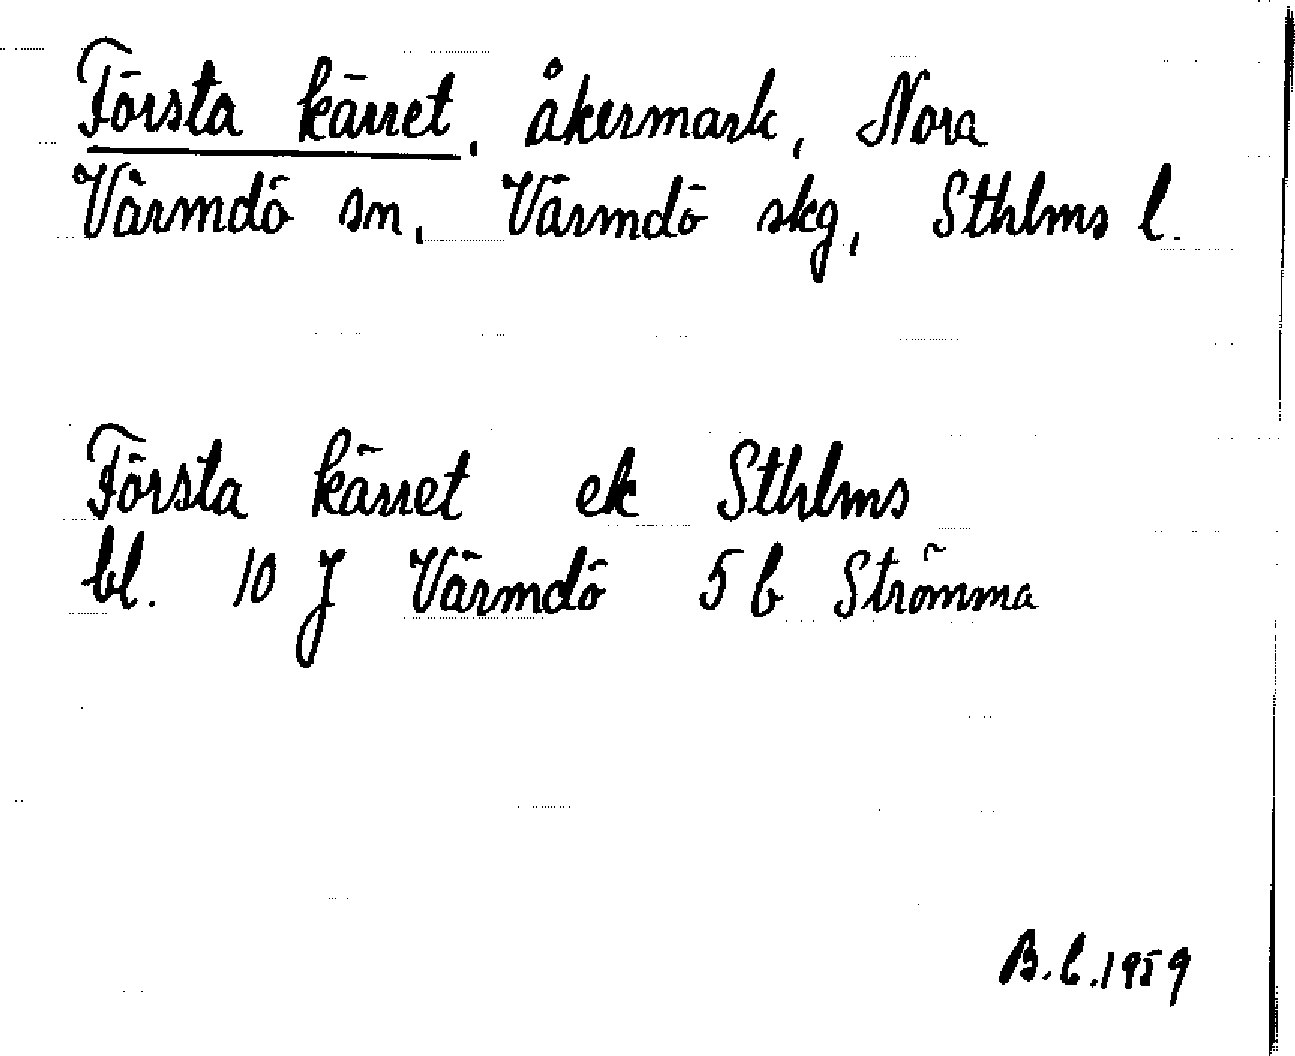 Första kärret, åkermark, Nora
Värmdö sn, Värmdö skg, Sthlms l.
Första kärret ek Sthlms
bl. 10 J Värmdö 5b Strömma
B.C. 1959